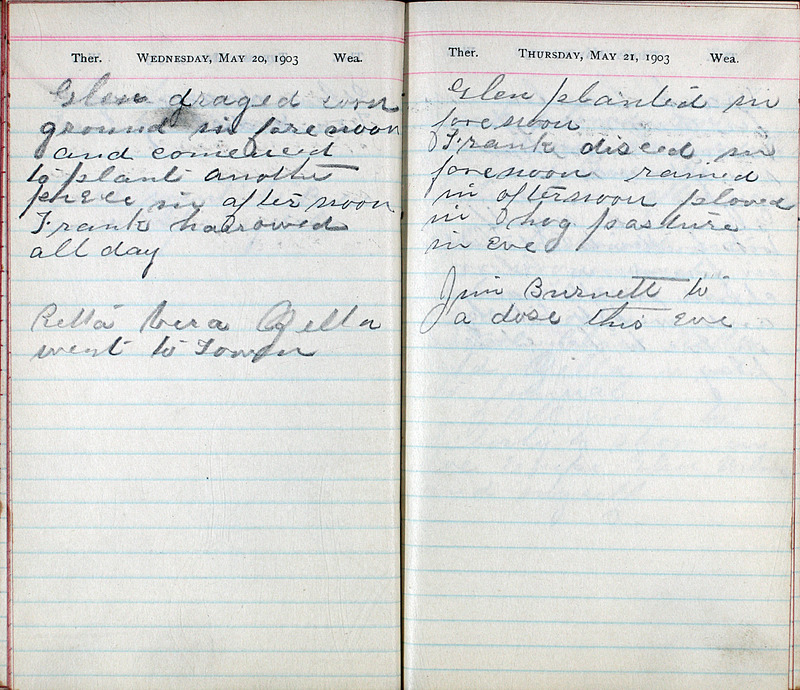 Ther. WEDNESDAY, MAY 20, 1903 Wea.
Glen draged corn
ground in forenoon
and comenced
to plant another
piece in after noon
Frank harrowed
all day
Retta Vera
went to Town
Ther. THURSDAY, MAY 21, 1903 Wea.
Glen planted in
forenoon
Frank disced in
forenoon rained
in afternoon plowed
in hog pasture
in Eve
Jim Burnett to
a dose this Eve